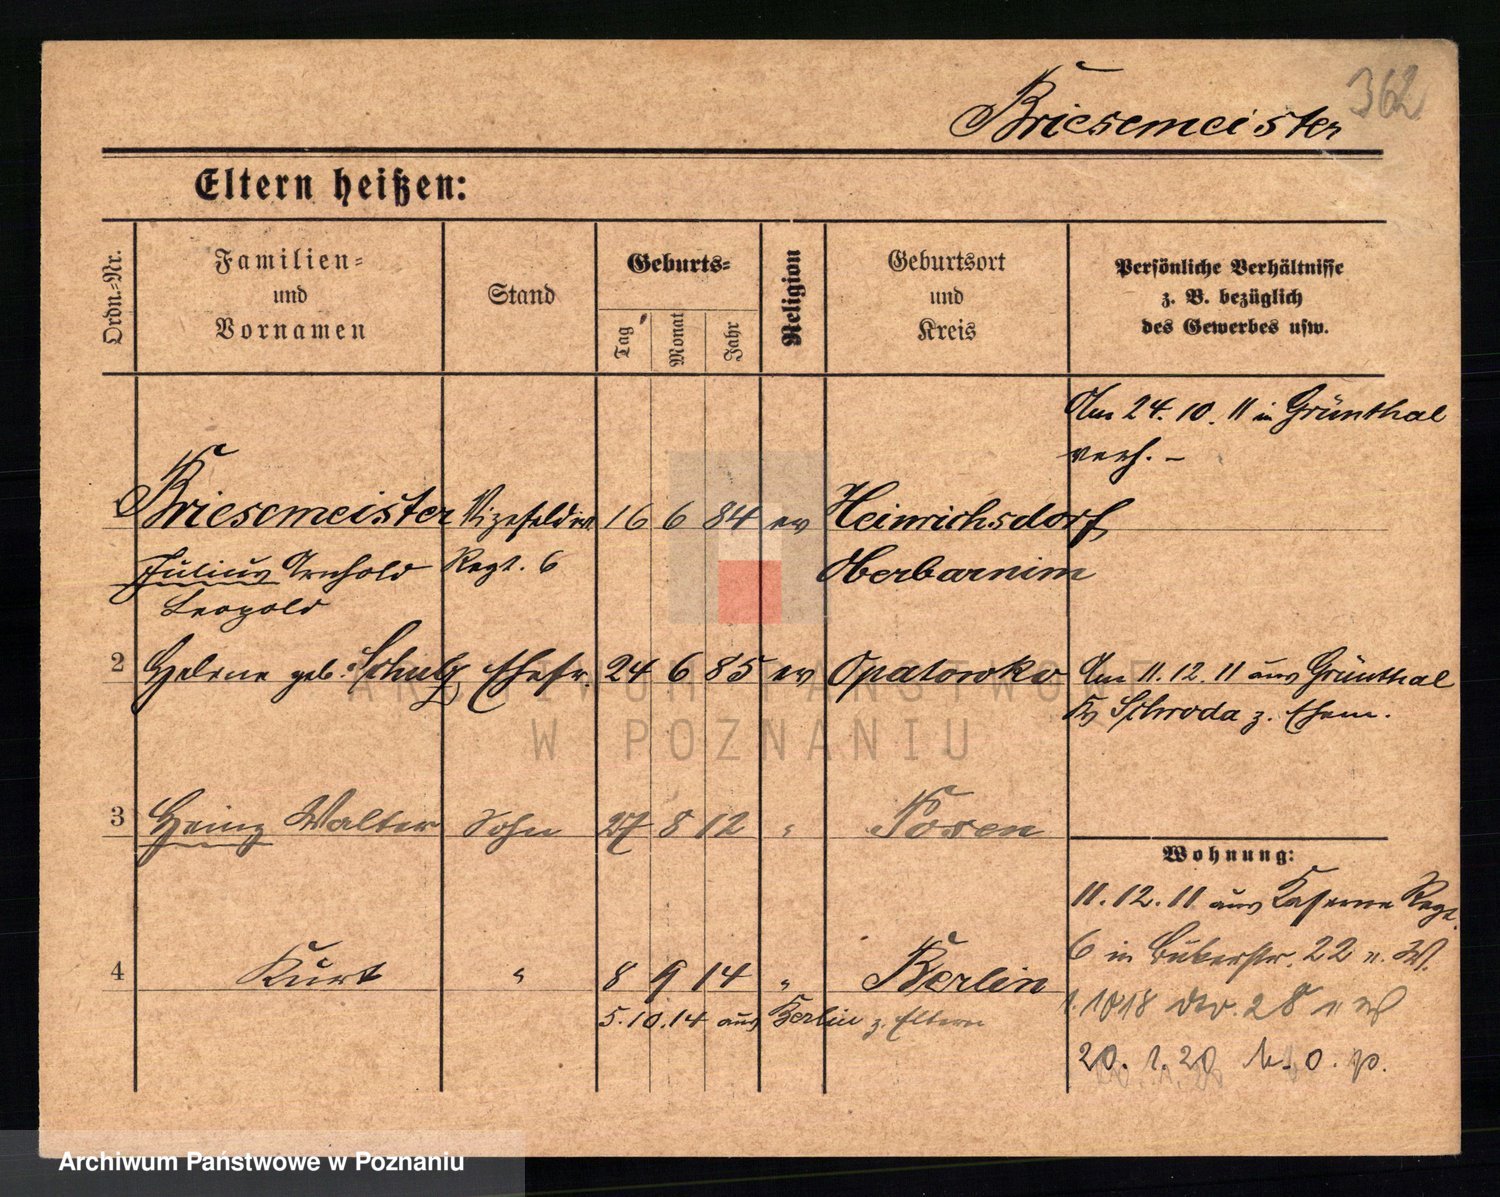 362
Briesemeister
Eltern heißen:
Ordn.-Nr.
Familien-
und
Vornamen
Stand
Geburts-
Tag
Monat
Jahr
Religion
Geburtsort
und
Kreis
Persönliche Verhältnisse
z. B. bezüglich
des Gewerbes usw.
Am 24. 10. 11 in Grünthal
verh. –
1 Briesemeister Vizefeldw 16 6 84 ev Heinrichsdorf
Julius Arnhold Regt. 6 Oberbarnim
Leopold
2 Helene geb. Schulz Ehefr. 24 6 85 ev Opatowko Am 11. 12. 11 aus Grünthal
Schroda z. Ehem.
3 Heinz Walter Sohn 27 8 12 " Posen
Wohnung:
11. 12. 11 aus Kaserne Regt.
6 in Bukerstr. 22 v. W.
4 Kurt " 8 9 14 " Berlin
5. 10. 14 aus Berlin z. Eltern
28
20. 1. 20
ARCHIWUM PAŃSTWOWE
W POZNANIU
Archiwum Państwowe w Poznaniu